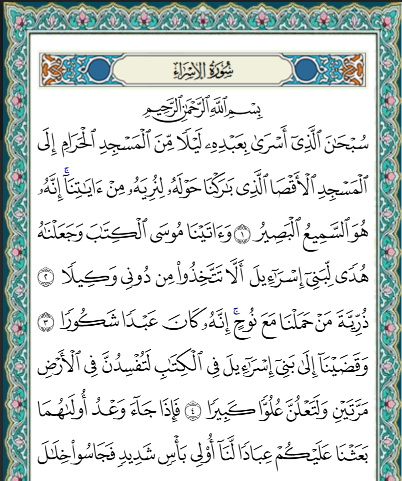 سُورَةُ الإِسْرَاءِ
بِسْمِ اللَّهِ الرَّحْمَٰنِ الرَّحِيمِ
سُبْحَانَ الَّذِي أَسْرَىٰ بِعَبْدِهِ لَيْلًا مِنَ الْمَسْجِدِ الْحَرَامِ إِلَى
الْمَسْجِدِ الْأَقْصَا الَّذِي بَارَكْنَا حَوْلَهُ لِنُرِيَهُ مِنْ ءَايَاتِنَا ۚ إِنَّهُ
هُوَ السَّمِيعُ الْبَصِيرُ ١ وَءَاتَيْنَا مُوسَى الْكِتَابَ وَجَعَلْنَاهُ
هُدًى لِبَنِي إِسْرَاءِيلَ أَلَّا تَتَّخِذُوا مِن دُونِي وَكِيلًا ٢
ذُرِّيَّةَ مَنْ حَمَلْنَا مَعَ نُوحٍ ۚ إِنَّهُ كَانَ عَبْدًا شَكُورًا ٣
وَقَضَيْنَا إِلَىٰ بَنِي إِسْرَاءِيلَ فِي الْكِتَابِ لَتُفْسِدُنَّ فِي الْأَرْضِ
مَرَّتَيْنِ وَلَتَعْلُنَّ عُلُوًّا كَبِيرًا ٤ فَإِذَا جَاءَ وَعْدُ أُولَاهُمَا
بَعَثْنَا عَلَيْكُمْ عِبَادًا لَنَا أُولِي بَأْسٍ شَدِيدٍ فَجَاسُوا خِلَالَ